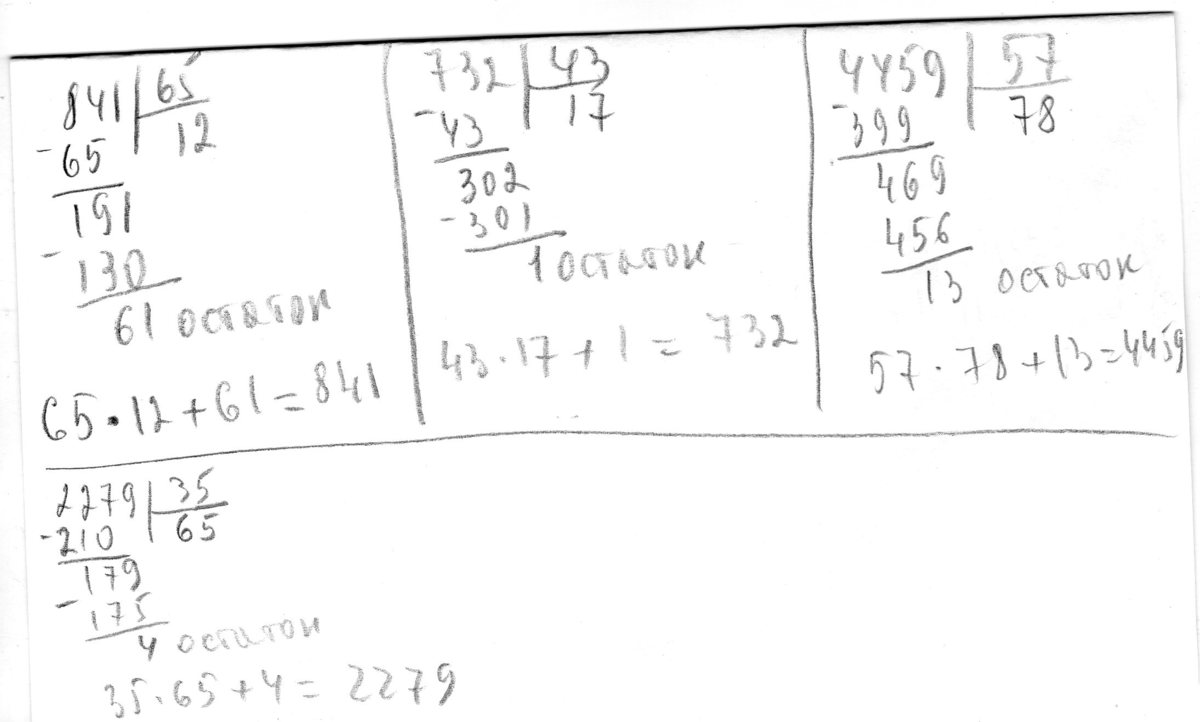 841 65
12
-65
191
-130
61 остаток
65·12+61=841
732 43
17
-43
302
-301
1 остаток
43·17+1=732
4459 57
78
-399
469
456
13 остаток
57·78+13=4459
2279 35
65
-210
179
-175
4 остаток
35·65+4=2279